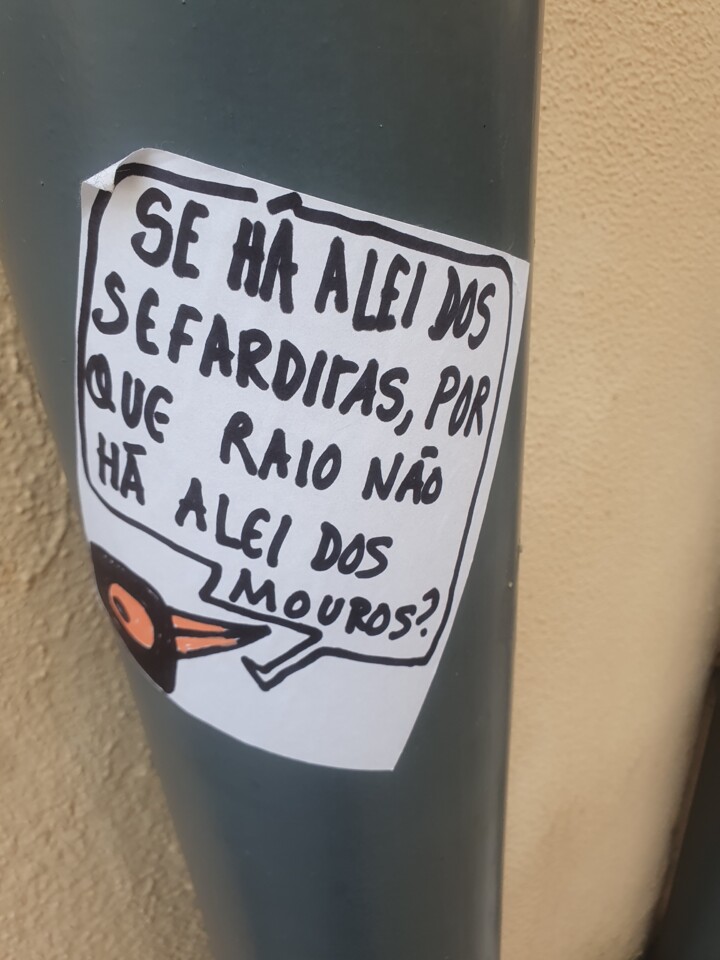 SE HÁ A LEI DOS
SEFARDITAS, POR
QUE RAIO NÃO
HÁ A LEI DOS
MOUROS?